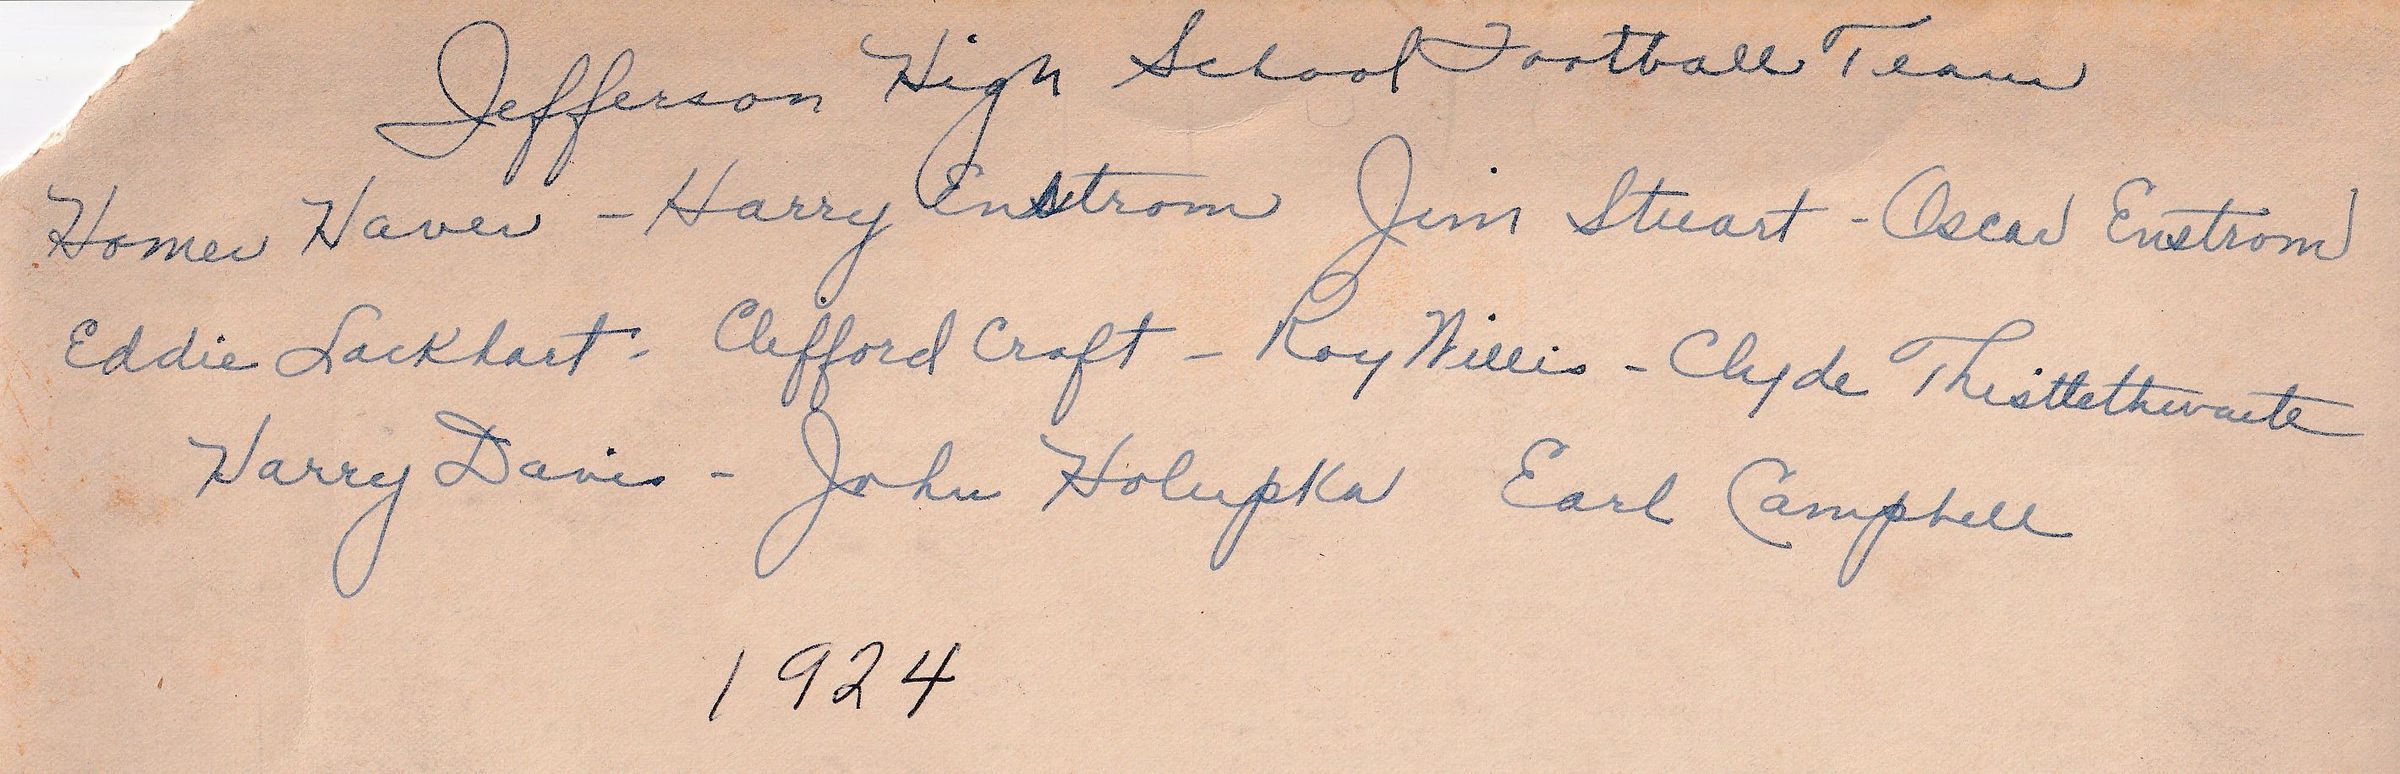 Jefferson High School Football Team
Homer Haver - Harry Enstrom Jim Stuart - Oscar Enstrom
Eddie Lockhart - Clifford Craft - Roy Willis - Clyde Thistlethwaite
Harry Davis - John Holupka Earl Campbell
1924